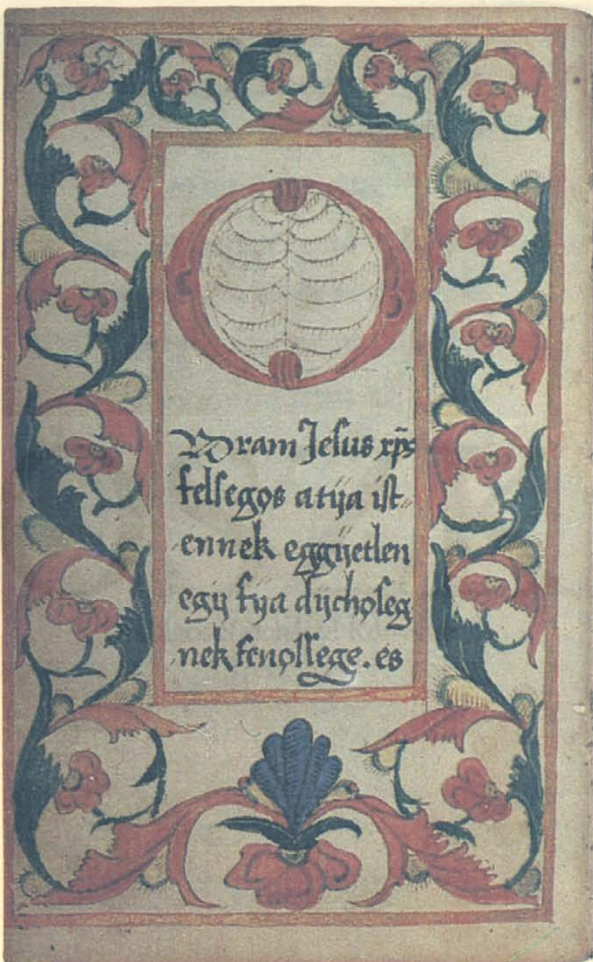 O
Vram Jesus xp̄s
felsegos atÿa ist
ennek eggÿetlen
egÿ fÿa dÿchoseg
nek fenossege. es